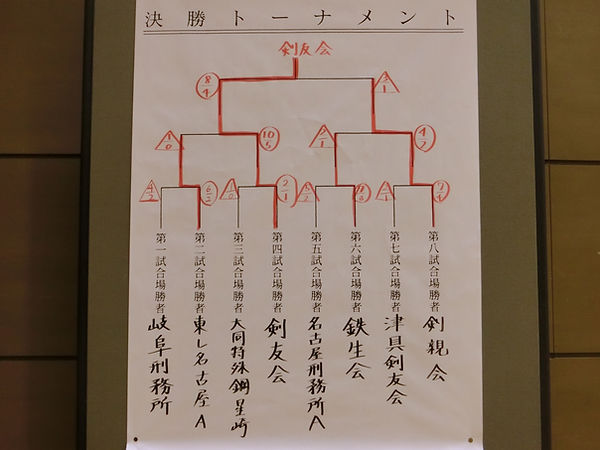 決勝トーナメント
剣友会
8/4
3/1
1/0
10/5
2/1
4/2
4/2
6/2
1/0
2/1
第一試合場勝者 岐阜刑務所
第二試合場勝者 東レ名古屋A
第三試合場勝者 大同特殊鋼星崎
第四試合場勝者 剣友会
第五試合場勝者 名古屋刑務所A
第六試合場勝者 鉄生会
第七試合場勝者 津具剣友会
第八試合場勝者 剣親会